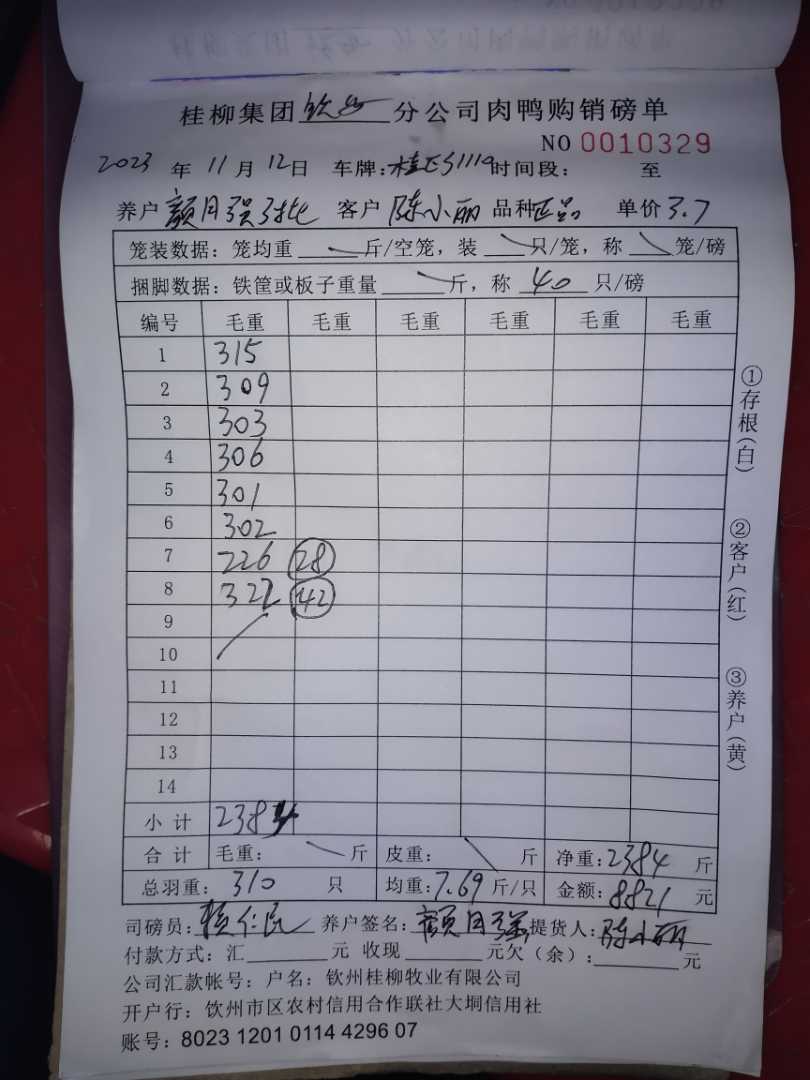 桂柳集团钦州分公司肉鸭购销磅单
NO 0010329
2023 年 11 月 12 日 车牌: 时间段: 至
养户 颜月强 客户 陈小丽 品种 正品 单价 3.7
笼装数据:笼均重 斤/空笼,装 只/笼,称 笼/磅
捆脚数据:铁筐或板子重量 斤,称 40 只/磅
编号 毛重 毛重 毛重 毛重 毛重 毛重
1 315
2 309
3 303
4 306
5 301
6 302
7 226 28
8 322 42
9
10
11
12
13
14
小计 2384
合计 毛重: 斤 皮重: 斤 净重:2384 斤
总羽重: 310 只 均重:7.69 斤/只 金额:8821 元
司磅员: 养户签名:颜月强 提货人:陈小丽
付款方式:汇 元 收现 元欠(余): 元
公司汇款帐号:户名:钦州桂柳牧业有限公司
开户行:钦州市区农村信用合作联社大垌信用社
账号:8023 1201 0114 4296 07
①存根(白)
②客户(红)
③养户(黄)